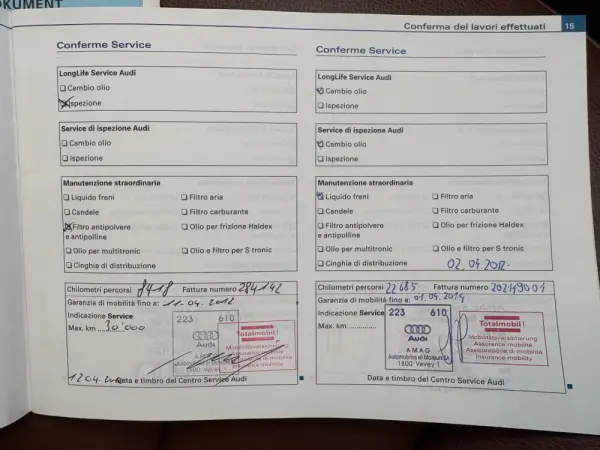 DKUMENT
Conferma dei lavori effettuati 15
Conferme Service
LongLife Service Audi
Cambio olio
Ispezione
Service di ispezione Audi
Cambio olio
Ispezione
Manutenzione straordinaria
Liquido freni
Filtro aria
Candele
Filtro carburante
Filtro antipolvere
e antipolline
Olio per frizione Haldex
Olio per multitronic
Olio e filtro per S tronic
Cinghia di distribuzione
Chilometri percorsi 8418 Fattura numero 284142
Garanzia di mobilità fino a: 11.04.2012
Indicazione Service
Max. km 30'000
223 610
Audi
Totalmobil!
Mobilitätsversicherung
Assurance mobilité
Assicurazione di mobilità
Insurance mobility
1800 Vevey 1
Data e timbro del Centro Service Audi
Conferme Service
LongLife Service Audi
Cambio olio
Ispezione
Service di ispezione Audi
Cambio olio
Ispezione
Manutenzione straordinaria
Liquido freni
Filtro aria
Candele
Filtro carburante
Filtro antipolvere
e antipolline
Olio per frizione Haldex
Olio per multitronic
Olio e filtro per S tronic
Cinghia di distribuzione
02.04.2012.
Chilometri percorsi 22685 Fattura numero 20249001
Garanzia di mobilità fino a: 01.04.2014
Indicazione Service
Max. km
223 610
Audi
AMAG
1800 Vevey 1
Totalmobil!
Mobilitätsversicherung
Assurance mobilité
Assicurazione di mobilità
Insurance mobility
Data e timbro del Centro Service Audi